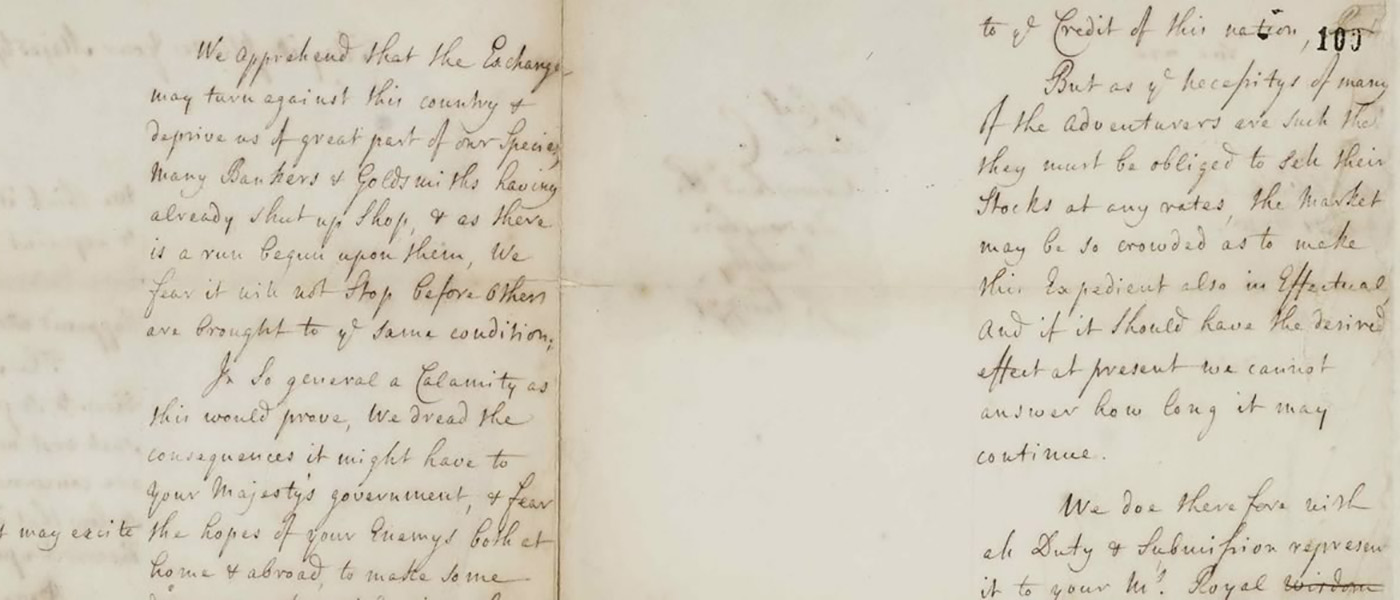 We apprehend that the Exchange
may turn against this country &
deprive us of great part of our Specie,
Many Bankers & Goldsmiths having
already shut up Shop, & as there
is a run begun upon them, We
fear it will not Stop before others
are brought to yͤ same condition;
In So general a Calamity as
this would prove, We dread the
consequences it might have to
your Majesty's government, & fear
t may excite the hopes of your Enemys both at
home & abroad, to make some
to yͤ Credit of this nation,
100
But as yͤ necessitys of many
of the adventurers are such that
they must be obliged to sell their
Stocks at any rates, the Market
may be so crowded as to make
this Expedient also in Effectual,
And if it should have the desired
effect at present we cannot
answer how long it may
continue.
We doe therefore with
all Duty & Submission represent
it to your Mᵗʸ. Royal wisdom